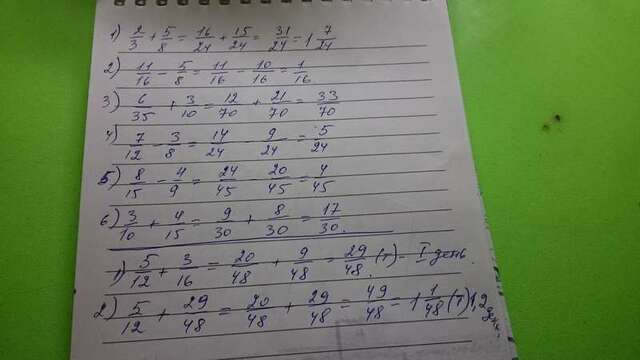 1) 2/3 + 5/8 = 16/24 + 15/24 = 31/24 = 1 7/24
2) 11/16 - 5/8 = 11/16 - 10/16 = 1/16
3) 6/35 + 3/10 = 12/70 + 21/70 = 33/70
4) 7/12 - 3/8 = 14/24 - 9/24 = 5/24
5) 8/15 - 4/9 = 24/45 - 20/45 = 4/45
6) 3/10 + 4/15 = 9/30 + 8/30 = 17/30.
1) 5/12 + 3/16 = 20/48 + 9/48 = 29/48 (т) - I день.
2) 5/12 + 29/48 = 20/48 + 29/48 = 49/48 = 1 1/48 (т) 1,2